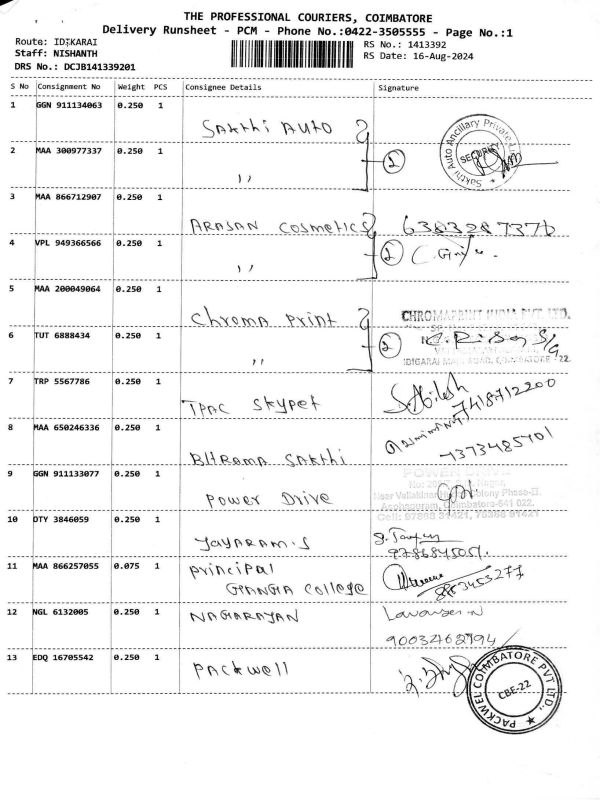 THE PROFESSIONAL COURIERS, COIMBATORE
Delivery Runsheet - PCM - Phone No.:0422-3505555 - Page No.:1
Route: IDIKARAI
Staff: NISHANTH
DRS No.: DCJB141339201
RS No.: 1413392
RS Date: 16-Aug-2024
S No Consignment No Weight PCS Consignee Details Signature
1 GGN 911134063 0.250 1 SAKthi AUTO
2 MAA 300977337 0.250 1 ,, 2
Sakthi Auto Ancillary Private
SECURITY
3 MAA 866712907 0.250 1 ARASAN Cosmetics 6383287376
4 VPL 949366566 0.250 1 ,, 2
5 MAA 200049064 0.250 1 Chroma Print
CHROMAPRINT INDIA PVT. LTD.
6 TUT 6888434 0.250 1 ,, 2
IDIGARAI MAIN ROAD, COIMBATORE - 22
7 TRP 5567786 0.250 1 TPAC Skypet 7418712200
8 MAA 650246336 0.250 1 BHRAMA SAKthi
9 GGN 911133077 0.250 1 Power Drive
POWER DRIVE
Colony Phase-II.
Coimbatore-641 022.
10 DTY 3846059 0.250 1 JAYARAM.S
9786845051.
11 MAA 866257055 0.075 1 principal
GANGA College
12 NGL 6132005 0.250 1 NAGARAYAN
13 EDQ 16705542 0.250 1 PACKwell
PACKWEL COIMBATORE PVT LTD
CBE-22